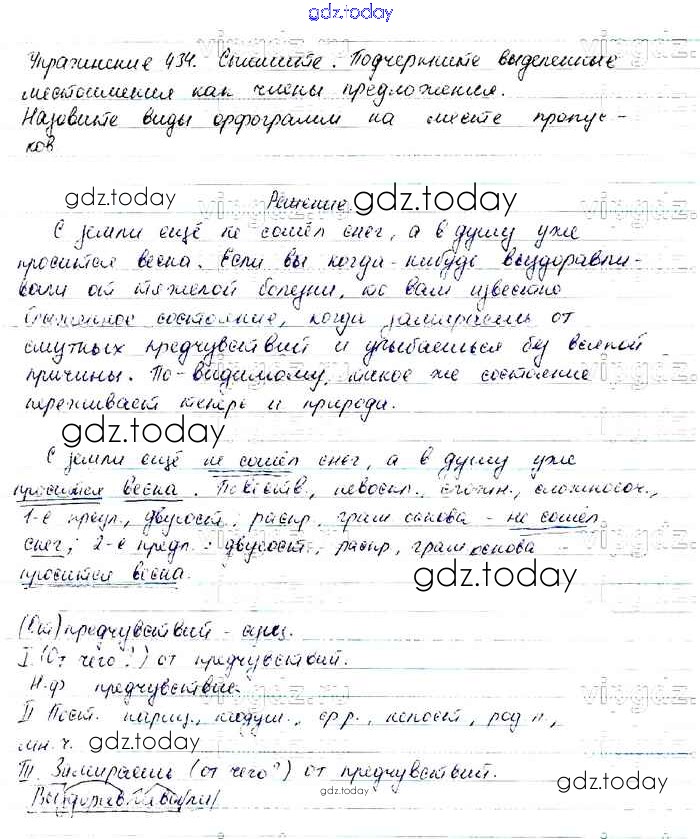 gdz.today
Упражнение 434. Спишите. Подчеркните выделенные
местоимения как члены предложения.
Назовите виды орфограмм на месте пропус-
ков
gdz.today
Решение
gdz.today
С земли ещё не сошёл снег, а в душу уже
просится весна. Если вы когда-нибудь выздоравли-
вали от тяжелой болезни, то вам известно
блаженное состояние, когда замираешь от
смутных предчувствий и улыбаешься без всякой
причины. По-видимому, такое же состояние
переживает теперь и природа.
gdz.today
С земли ещё не сошёл снег, а в душу уже
просится весна. Повеств., невоскл., сложн., сложносоч.,
1-е предл., двусост., распр., грам основа - не сошёл
снег; 2-е предл.: двусост., распр., грам основа
просится весна.
gdz.today
(От) предчувствий - сущ.
I. (От чего?) от предчувствий.
Н.ф предчувствие.
II Пост. нариц., неодуш., ср.р., непост., род п.,
мн.ч.
gdz.today
III. Замираешь (от чего?) от предчувствий.
gdz.today
Выздоравливали
gdz.today